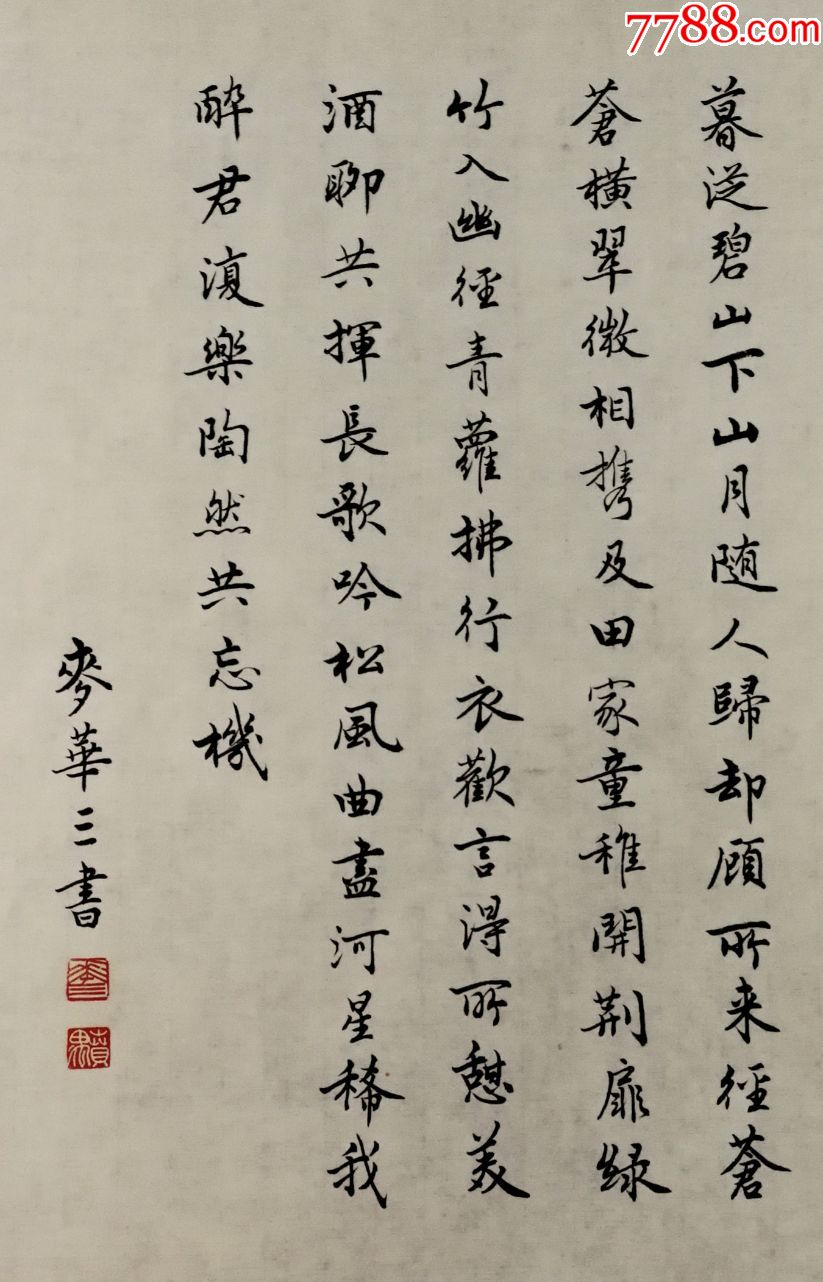 7788.com
暮従碧山下山月随人歸却顧所来徑蒼
蒼橫翠微相携及田家童稚開荆扉緑
竹入幽徑青蘿拂行衣歡言得所憩美
酒聊共揮長歌吟松風曲盡河星稀我
醉君復樂陶然共忘機
麥華三書